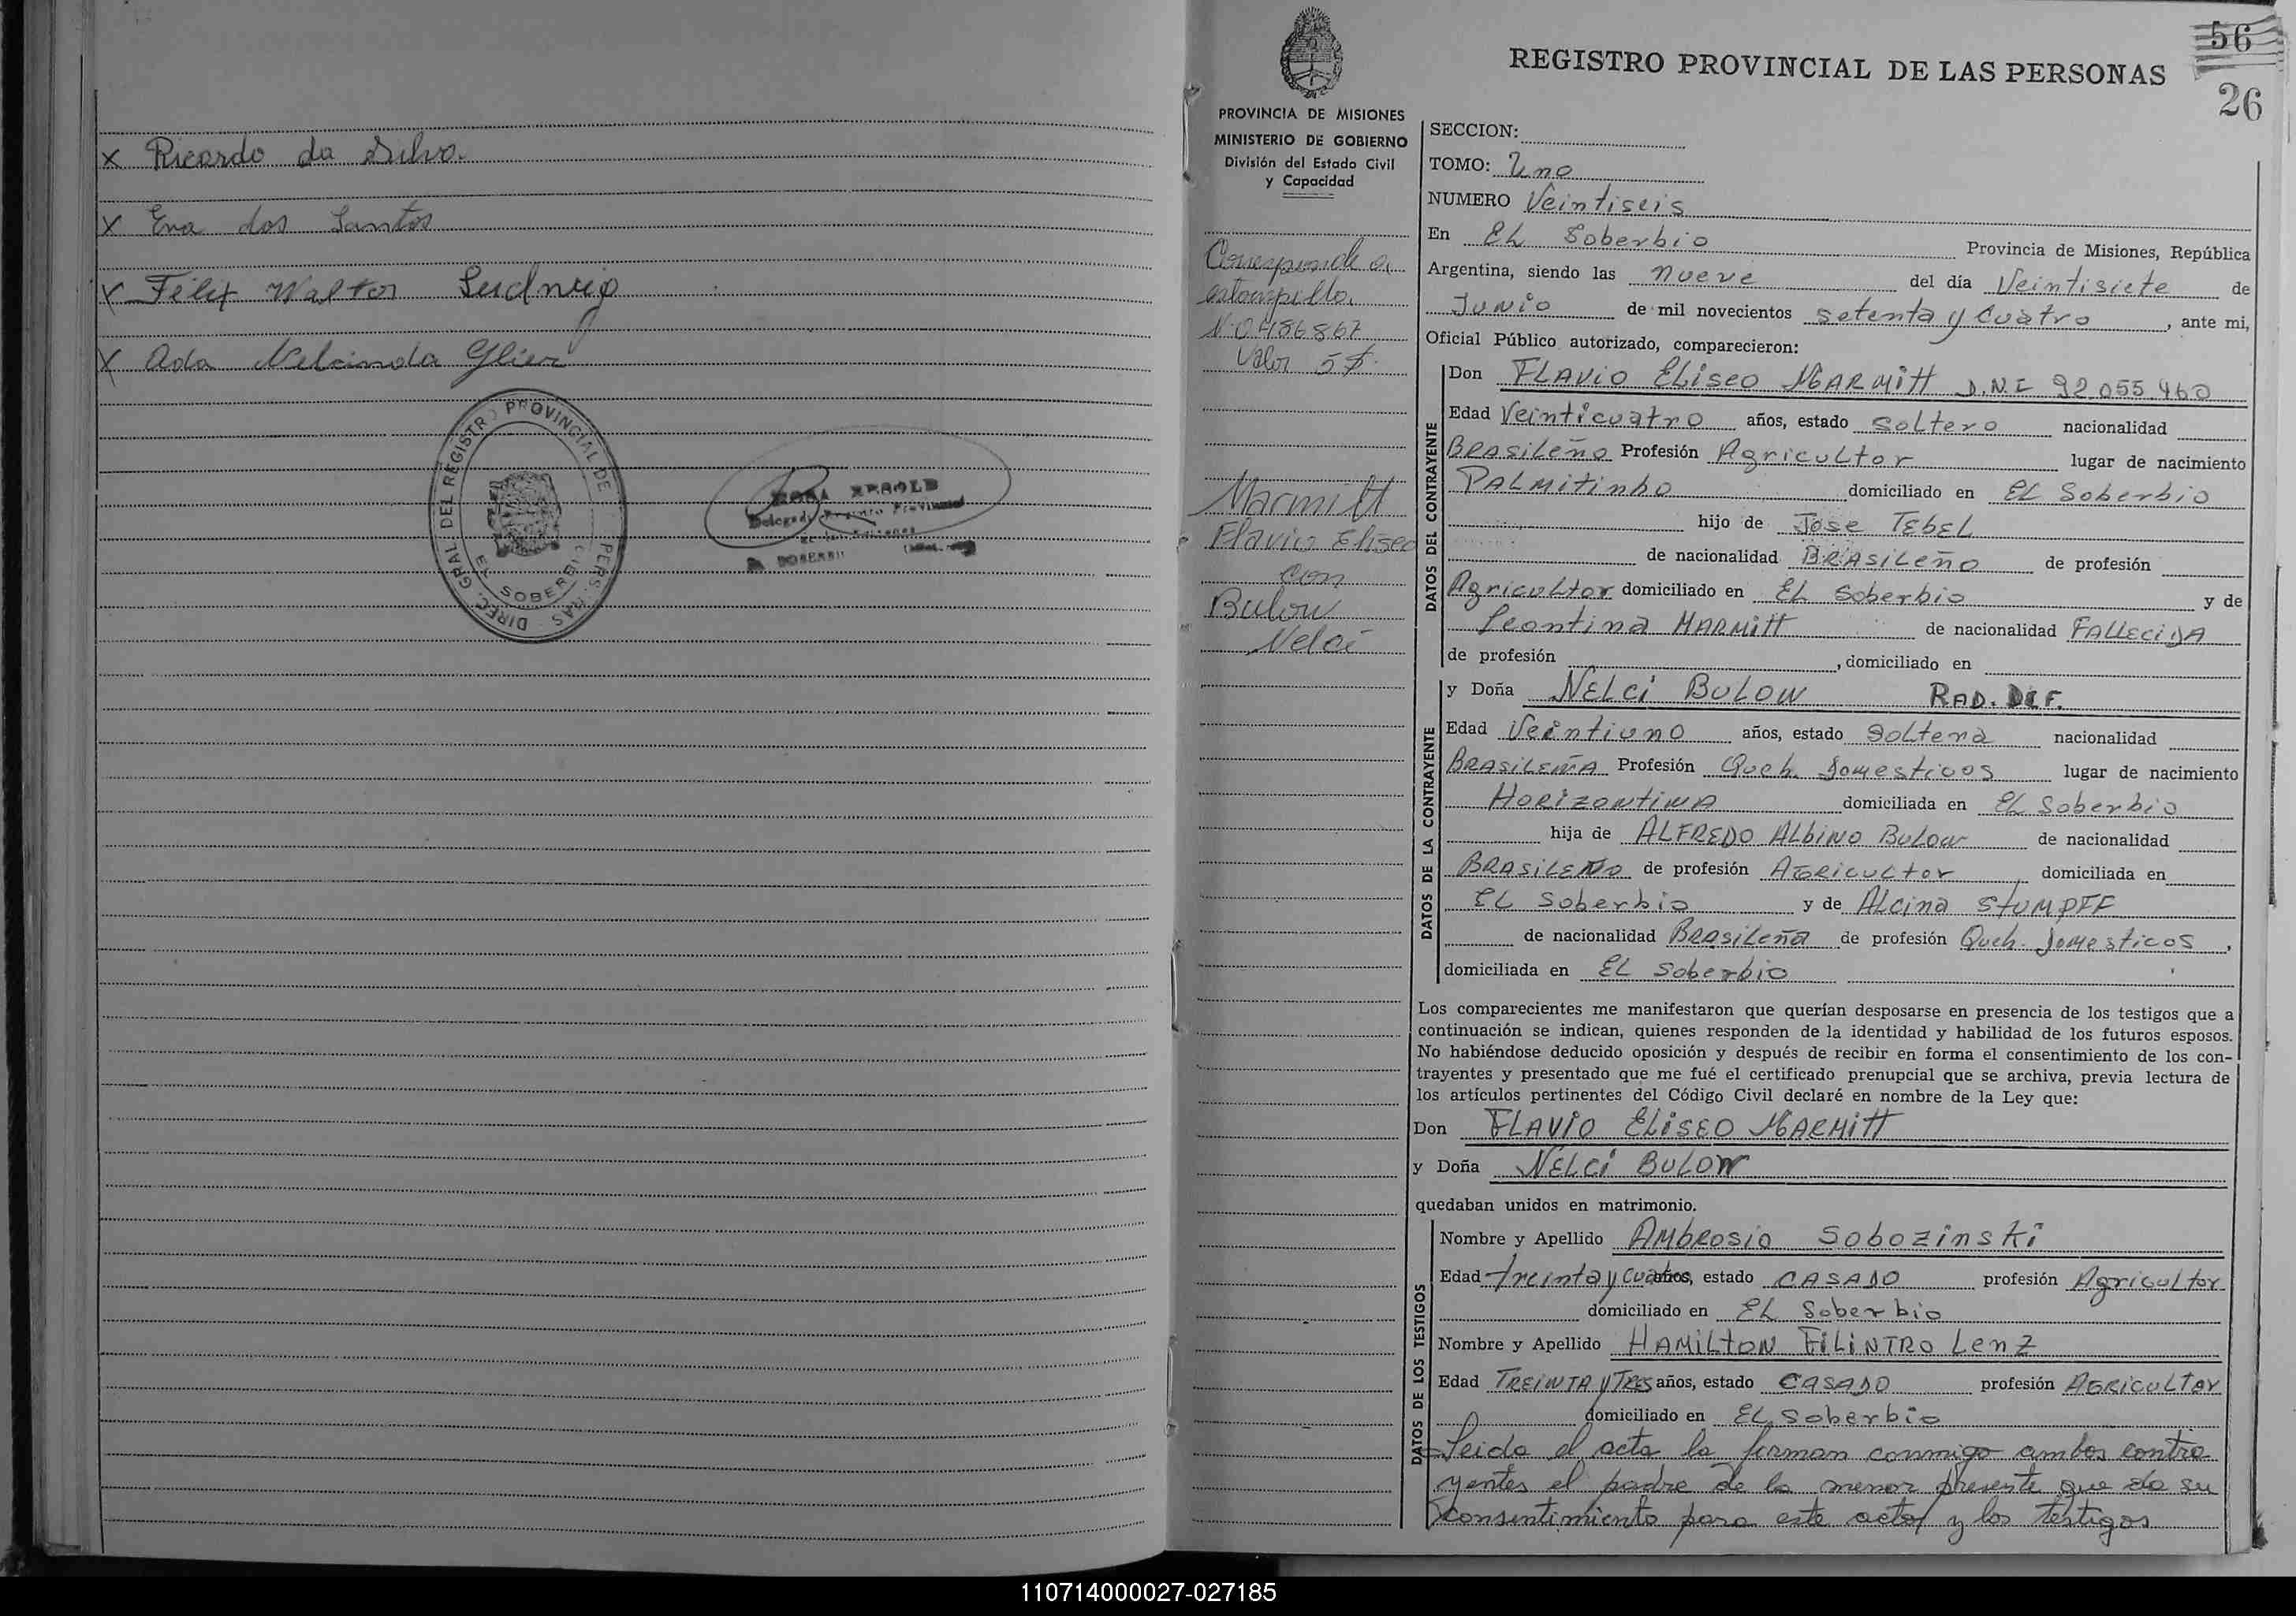 x Ricardo da Silva.
x Eva dos Santos
x Felix Walter Ludwig
x Ada Glier
DIREC. GRAL DEL REGISTRO PROVINCIAL DE PERSONAS
EL SOBERBIO
56
26
REGISTRO PROVINCIAL DE LAS PERSONAS
PROVINCIA DE MISIONES
MINISTERIO DE GOBIERNO
División del Estado Civil
y Capacidad
Corresponde a
estampilla
Nº 0486867
Valor 5 $.
Marmitt
Flavio Eliseo
con
Bulow
Nelci
SECCION:
TOMO: Uno
NUMERO Veintiseis
En EL Soberbio Provincia de Misiones, República
Argentina, siendo las nueve del día Veintisiete de
Junio de mil novecientos setenta y cuatro, ante mi,
Oficial Público autorizado, comparecieron:
DATOS DEL CONTRAYENTE
Don FLAVIO ELISEO MARMITT D.N.I 92.055.460
Edad Veinticuatro años, estado soltero nacionalidad
BRASILEÑO Profesión Agricultor lugar de nacimiento
PALMITINHO domiciliado en EL Soberbio
hijo de Jose TEBEL
de nacionalidad BRASILEÑO de profesión
Agricultor domiciliado en EL Soberbio y de
Leontina MARMITT de nacionalidad FALLECIDA
de profesión , domiciliado en
DATOS DE LA CONTRAYENTE
y Doña NELCI BULOW RAD. DEF.
Edad Veintiuno años, estado soltera nacionalidad
BRASILEÑA Profesión Queh. domesticos lugar de nacimiento
HORIZONTINA domiciliada en EL Soberbio
hija de ALFREDO ALBINO BULOW de nacionalidad
BRASILEÑO de profesión AGRICULTOR domiciliada en
EL Soberbio y de Alcina STUMPFF
de nacionalidad BRASILEÑA de profesión Queh. domesticos,
domiciliada en EL Soberbio
Los comparecientes me manifestaron que querían desposarse en presencia de los testigos que a
continuación se indican, quienes responden de la identidad y habilidad de los futuros esposos.
No habiéndose deducido oposición y después de recibir en forma el consentimiento de los con-
trayentes y presentado que me fué el certificado prenupcial que se archiva, previa lectura de
los artículos pertinentes del Código Civil declaré en nombre de la Ley que:
Don FLAVIO ELISEO MARMITT
y Doña NELCI BULOW
quedaban unidos en matrimonio.
DATOS DE LOS TESTIGOS
Nombre y Apellido AMBROSIO SOBOZINSKI
Edad treinta y cuatro años, estado CASADO profesión Agricultor
domiciliado en EL Soberbio
Nombre y Apellido HAMILTON FILINTRO Lenz
Edad TREINTA y TRES años, estado CASADO profesión AGRICULTOR
domiciliado en EL Soberbio
Leida el acta la firman conmigo ambos contra
yentes el padre de la menor presente que da su
consentimiento para este acto y los testigos
110714000027-027185